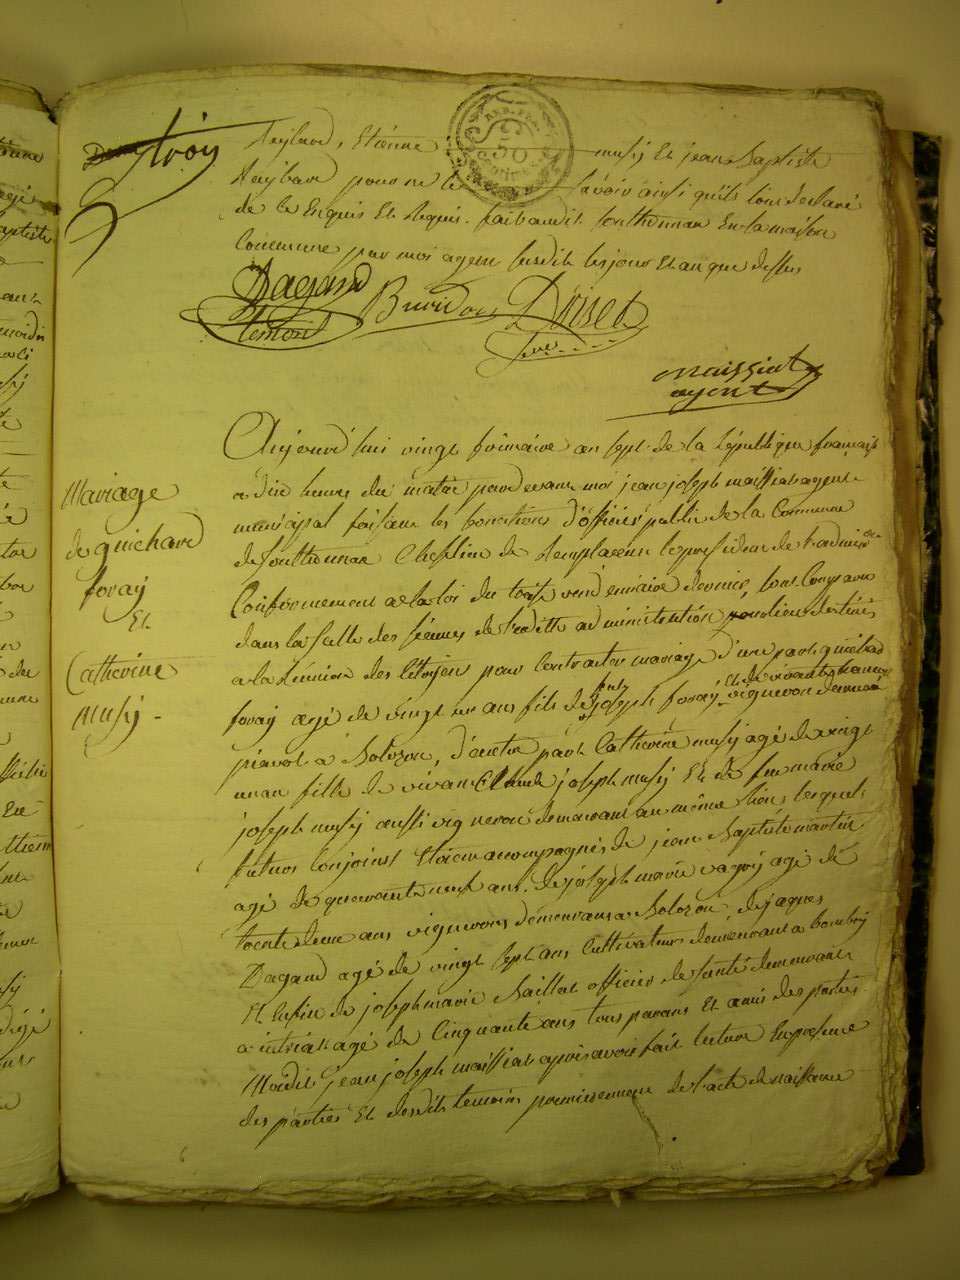 trois
Reybard, Etienne musy Et jean Baptiste
Reybard pour ne le savoir ainsi qu'ils l'ont declaré
de ce Enquis Et Requis. fait audit Southonnax En la maison
Commune par moi agent susdit les jour Et an que dessus
Dagand Buridon Doiset
temoin
maissiat
agent
Mariage
de guichard
foray
Et
Catherine
musy -
Aujourd'hui vingt frimaire an sept de la république française
a dix heures du matin pardevant moi jean joseph maissiat agent
municipal faisant les fonctions d'officier public de la Commune
de Southonnax Chef lieu de Remplacent le president de l'admin.on
Conformement a la loi du treize vendemiaire dernier, tous Comparus
dans la salle des séances de ladite administration pour lieu destinés
a la Réunion des Citoyens pour Contracter mariage d'une part guichard
foray agé de vingt un ans fils de feu joseph foray Et de vivante
vigneron demeurant
a Bolozon, d'autre part Catherine musy agé de vingt
un an fille de vivant Claude joseph musy Et de feu marie
joseph musy aussi vigneron demeurant au même lieu, lesquels
futurs Conjoints Etoient accompagnés de jean Baptiste martin
agé de quarante neuf ans. de joseph marie agé de
trente deux ans vignerons demeurants a Bolozon, de jaques
Dagand agé de vingt sept ans Cultivateur demeurant a
Et Enfin de joseph marie Baillat officier de santé demeurant
a intriat agé de Cinquante ans tous parans Et amis des parties
Moidit jean joseph maissiat apres avoir fait lecture En presence
des parties Et desdits temoins premierement de l'acte de naissance